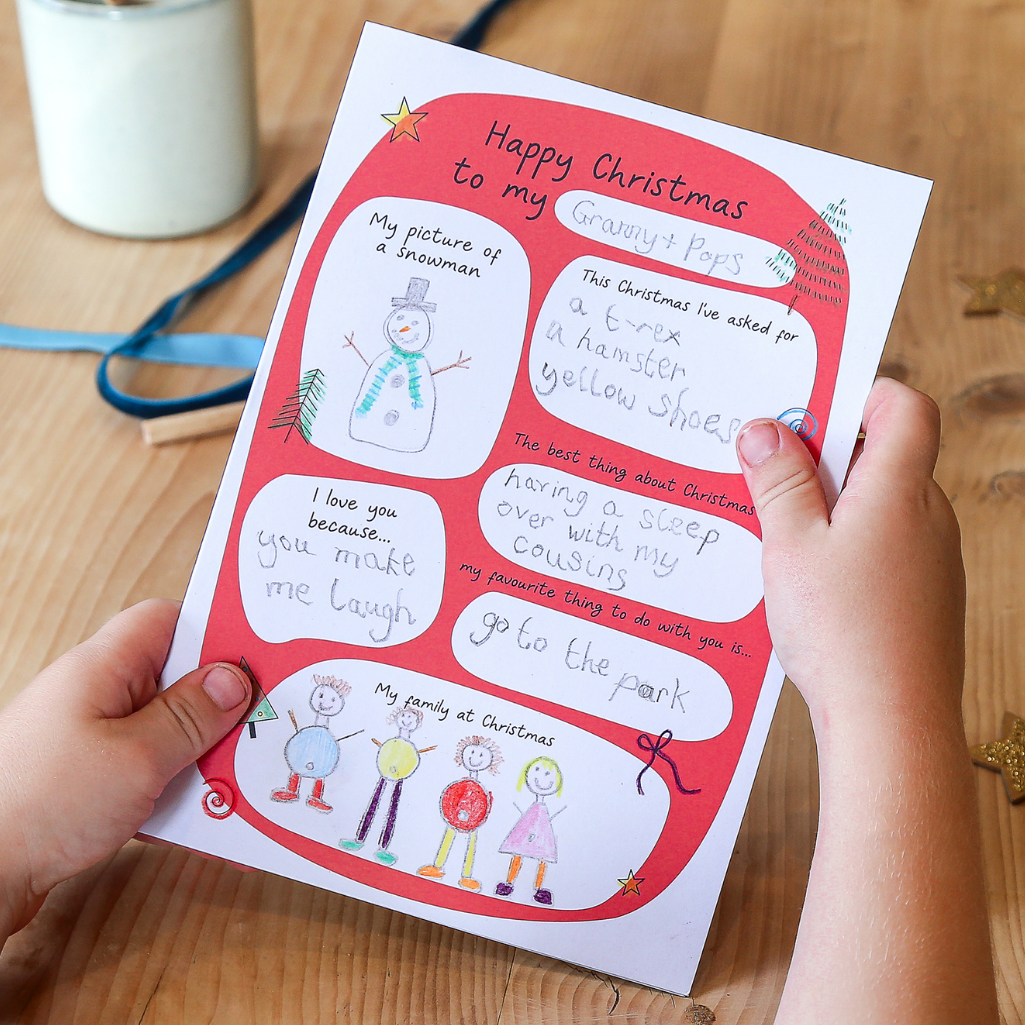 Happy Christmas
to my Granny + Pops
My picture of
a snowman
This Christmas I've asked for
a t-rex
a hamster
yellow shoes
The best thing about Christmas
having a sleep
over with my
cousins
I love you
because...
you make
me laugh
my favourite thing to do with you is...
go to the park
My family at Christmas